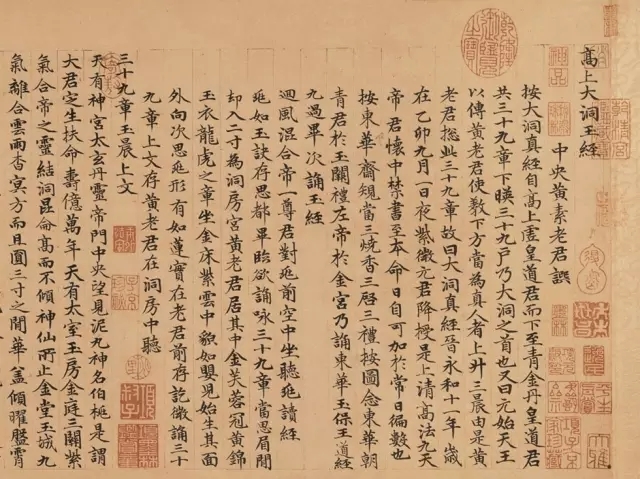 高上大洞玉經
中央黃素老君譔
按大洞真經自高上虛皇道君而下至青金丹皇道君
共三十九章下暎三十九戶乃大洞之首也又曰元始天王
以傳黃老君使教下方當為真人者上升三晨由是黃
老君捴此三十九章故曰大洞真經晉永和十一年歲
在乙卯九月一日夜紫微元君降授是上清髙法九天
帝君懷中禁書至本命日自可加於常日徧數也
按東華齋規當三燒香三啓三禮按圖念東華朝
青君於玉闕禮左帝於金宮乃誦東華玉保王道經
九過畢次誦玉經
迴風混合帝一尊君對𠃔前空中坐聽𠃔讀經
𠃔如玉訣存思都畢臨欲誦詠三十九章當思眉間
却入二寸為洞房宮黃老君居其中金芙蓉冠黃錦
玉衣龍虎之章坐金床紫雲中貌如嬰兒始生其面
外向次思𠃔形有如蓮實在老君前存訖微誦三十
九章上文存黃老君在洞房中聽
三十九章玉晨上文
天有神宮太玄丹靈帝門中央望見泥九神名伯桓是謂
大君定生扶命壽億萬年天有太室玉房金庭三關紫
氣合帝之靈結洞昆命髙而不傾神仙所止金堂玉城九
氣離合雲雨杳冥方而且圓三寸之間華盖傾曜鬱霄